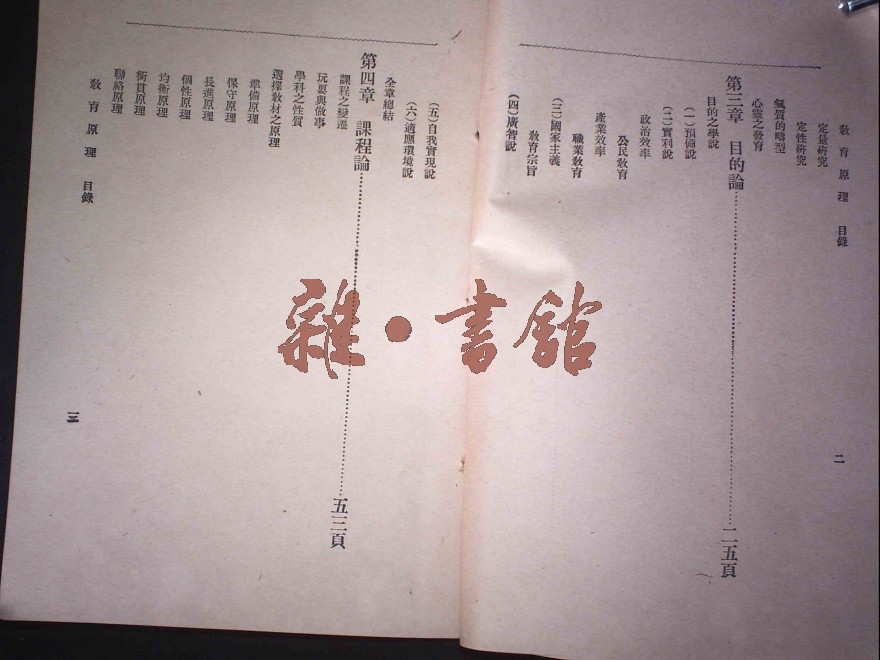 教育原理 目錄
二
定量研究
定性研究
氣質的畸型
心靈之發育
第三章 目的論 二五頁
目的之學說
(一)預備說
(二)實利說
政治效率
公民教育
產業效率
職業教育
(三)國家主義
教育宗旨
(四)廣智說
(五)自我實現說
(六)適應環境說
全章總結
第四章 課程論 五三頁
課程之變遷
玩耍與做事
學科之性質
選擇教材之原理
準備原理
保守原理
長進原理
個性原理
均衡原理
銜貫原理
聯絡原理
教育原理 目錄
三
雜·書館